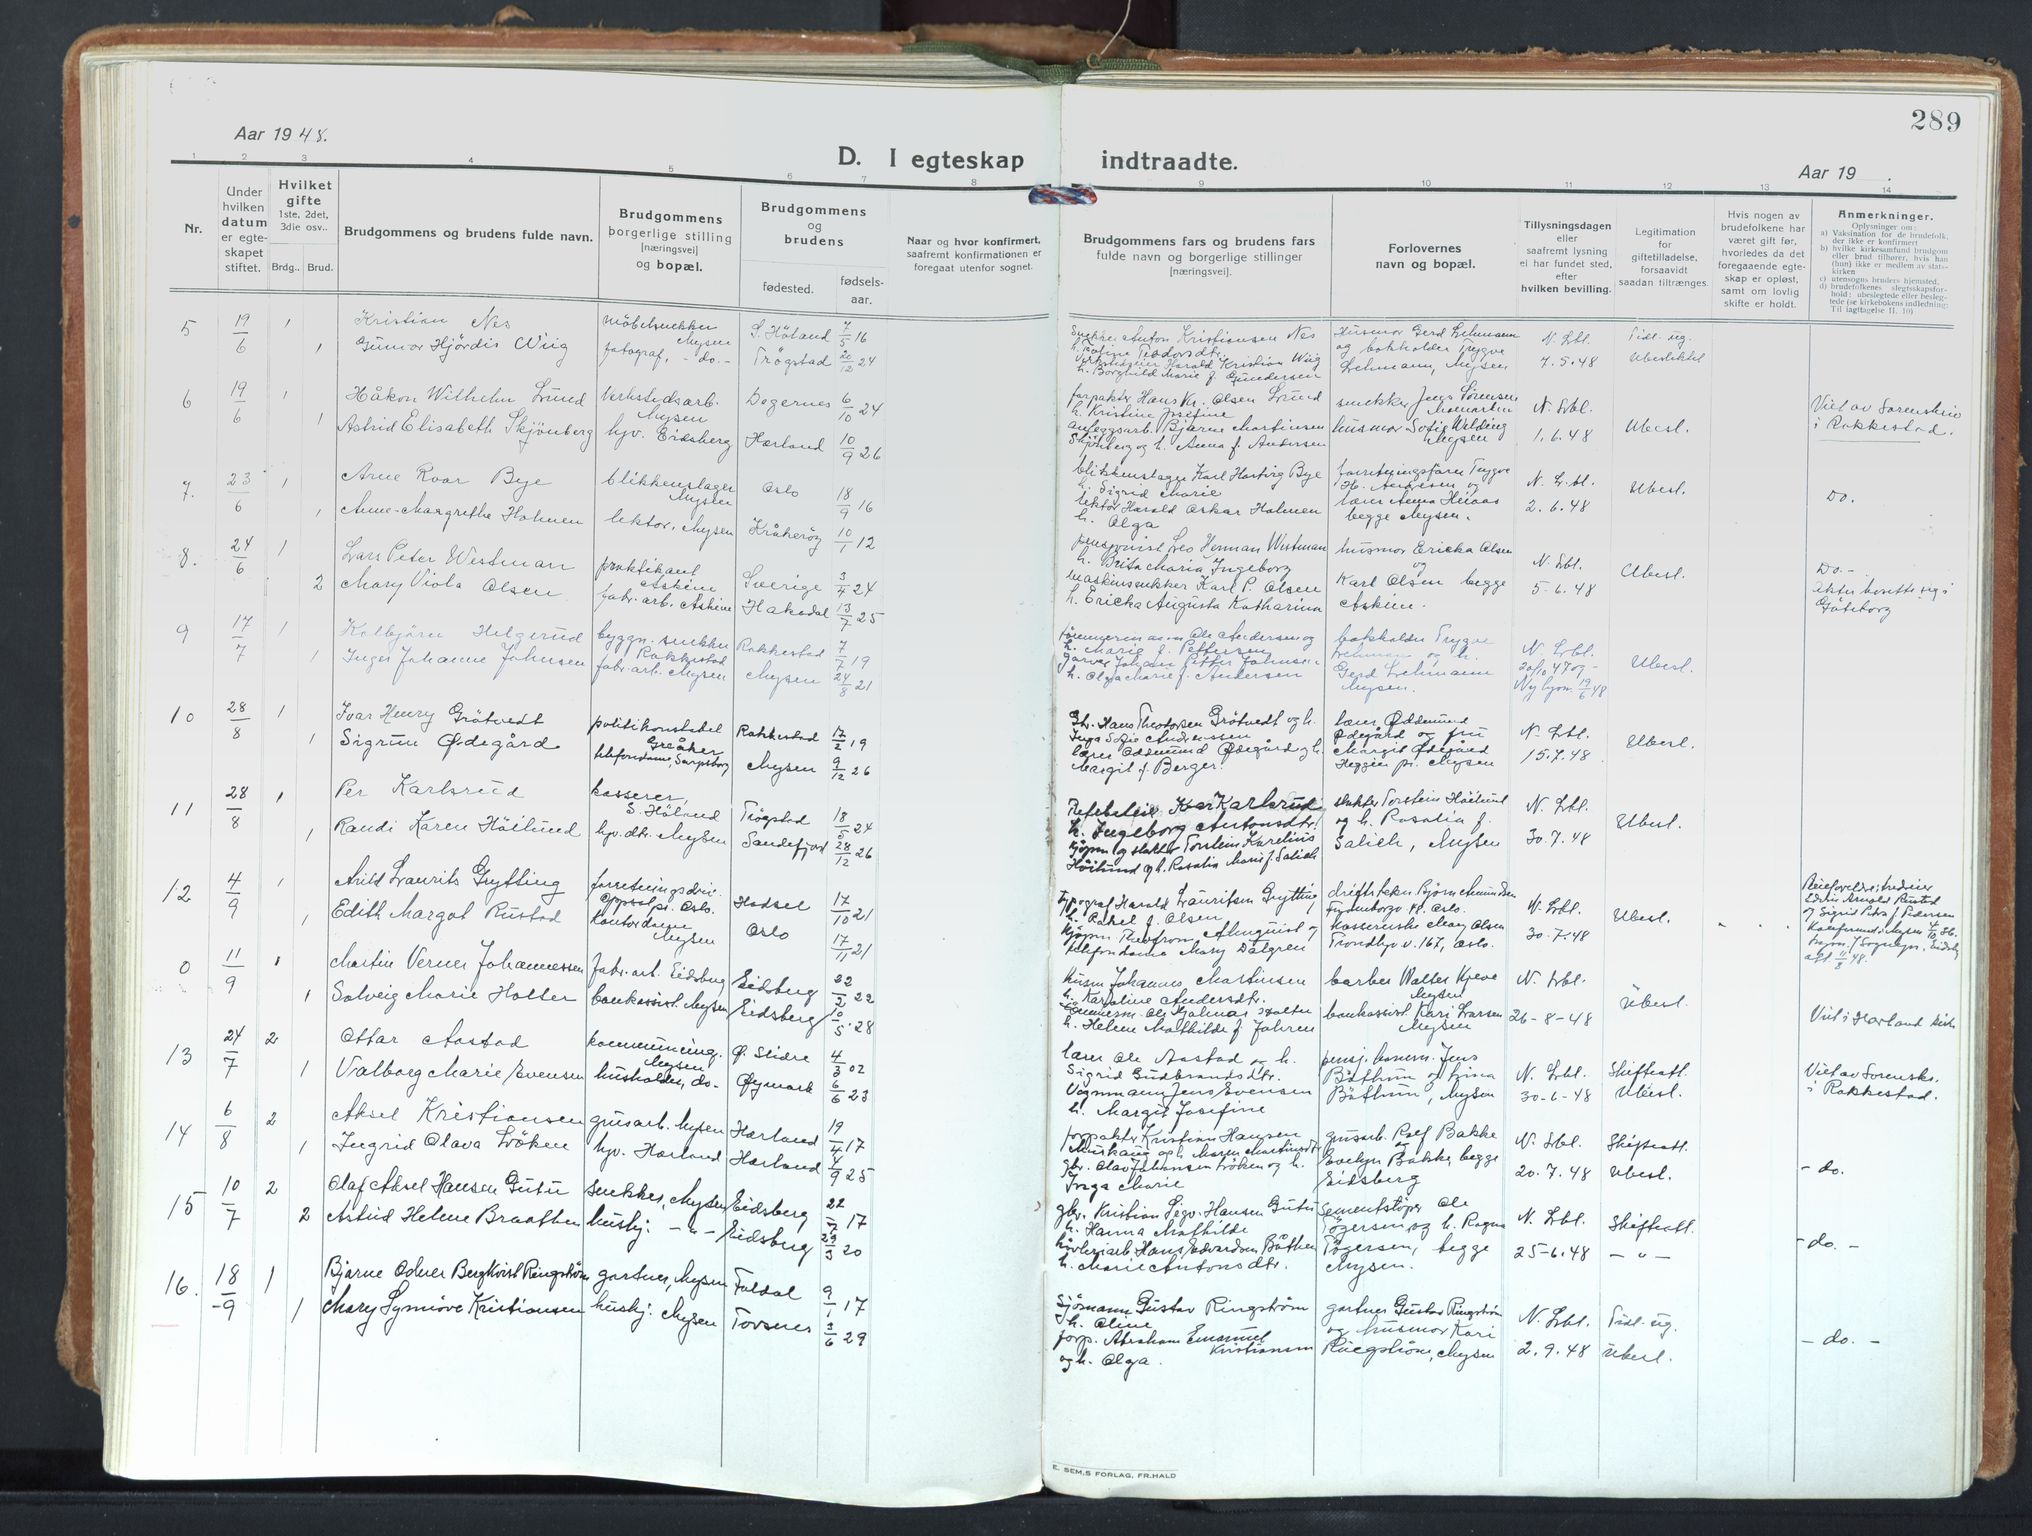 289
Aar 1948.
D. I egteskap indtraadte.
Aar 19 .
1 2 3 4 5 6 7 8 9 10 11 12 13 14
Nr.
Under
hvilken
datum
er egte-
skapet
stiftet.
Hvilket
gifte
1ste, 2det,
3die osv..
Brdg.. Brud.
Brudgommens og brudens fulde navn.
Brudgommens
borgerlige stilling
[næringsvei]
og bopæl.
Brudgommens
og
brudens
fødested.
fødsels-
aar.
Naar og hvor konfirmert,
saafremt konfirmationen er
foregaat utenfor sognet.
Brudgommens fars og brudens fars
fulde navn og borgerlige stillinger
[næringsvei].
Forlovernes
navn og bopæl.
Tillysningsdagen
eller
saafremt lysning
ei har fundet sted,
efter
hvilken bevilling.
Legitimation
for
giftetilladelse,
forsaavidt
saadan tiltrænges.
Hvis nogen av
brudefolkene har
været gift før,
hvorledes da det
foregaaende egte-
skap er opløst,
samt om lovlig
skifte er holdt.
Anmerkninger.
Oplysninger om:
a) Vaksination for de brudefolk,
der ikke er konfirmert
b) hvilke kirkesamfund brudgom
eller brud tilhører, hvis han
(hun) ikke er medlem av stats-
kirken
c) utensogns bruders hjemsted.
d) brudefolkenes slegtsskapsfor-
hold: ubeslegtede eller besleg-
tede (se kirkebokens indledning:
Til iagttagelse II. 10)
5 19/6 1 Kristian Nes møbelsnekker Mysen S. Høland 7/5 16
1 Gunvor Hjørdis Wiig fotograf, -do.- Trøgstad 20/12 24
Snekker Anton Kristiansen Nes
Harald Kristian Wiig
h. Borghild Marie f. Gundersen
Husmor Gerd Lehmann
og bokholder Trygve
Lehmann, Mysen
N. Lbl.
7.5.48
Tidl. ug.
Ubeslektet
6 19/6 1 Håkon Wilhelm Lund Verkstedsarb. Mysen Degernes 6/10 24
1 Astrid Elisabeth Skjønberg hjv. Eidsberg Hærland 10/9 26
forpakter Hans Kr. Olsen Lund
h. Kristine Josefine
anleggsarb. Bjarne Martinsen
Skjønberg og h. Anna f. Andersen
snekker Jens Sørensen
Momarken
husmor Sofie Welding
Mysen
N. Lbl.
1.6.48
Ubesl.
Viet av Sorenskriv
i Rakkestad.
7. 23/6 1 Arne Roar Bye blikkenslager Mysen Oslo 18/9 16
1 Anne-Margrethe Holmen lektor, Mysen Kråkerøy 10/1 12
blikkenslager Karl Hartvig Bye
h. Sigrid Marie
lektor Harald Oskar Holmen
h. Olga
forretningsfører Trygve
H. Andresen og
lærer Anna Heiaas
begge Mysen.
N. Lbl.
2.6.48
Ubesl.
Do.
8. 24/6 1 Lars Peter Westman praktikant Askim Sverige 3/4 24
2 Mary Viola Olsen fabr. arb. Askim Hakadal 13/7 25
Leo Herman Westman
h. Brita Maria Ingeborg
maskinsnekker Karl P. Olsen
h. Ericka Augusta Katharina
husmor Ericka Olsen
og
Karl Olsen begge
Askim.
N. Lbl.
5-6.48
Ubesl.
Do.-
Göteborg
9 17/7 1 Kolbjørn Helgerud byggn. snekker Rakkestad Rakkestad 7/7 19
1 Inger Johanne Johnsen fabr. arb. Mysen Mysen 24/8 21
Ole Andersen og
h. Marie f. Pettersen
garver Johan Petter Johnsen
h. Olga Marie f. Andersen
bokholder Trygve
Lehman og h.
Gerd Lehmann
Mysen.
N. Lbl.
20/10 47 og -
Ny lysn. 19/6 48
Ubesl.
10 28/8 1 Ivar Henry Grøtvedt politikonstabel Greåker Rakkestad 17/2 19
1 Sigrun Ødegård telefondame, Sarpsborg Mysen 9/12 26
Gbr. Hans Theodorsen Grøtvedt og h.
Inga Sofie Andreassen
lærer Oddmund Ødegård og h.
Margit f. Berger.
lærer Oddmund
Ødegård og fru
Margit Ødegård
Heggin pr. Mysen
N. Lbl.
15.7.48
Ubesl.
11 28/8 1 Per Karlsrud kasserer, S. Høland Trøgstad 18/5 24
1 Randi Karen Høilund hjv. dtr. Mysen Sandefjord 28/12 26
Karlsrud
h. Ingeborg Antonsdtr.
kjøpm og slakter Torstein Karelius
Høilund og h. Rosalia Marie f. Salich
slakter Torstein Høilund
og h. Rosalia f.
Salich, Mysen
N. Lbl.
30.7.48
Ubesl.
12 4/9 1 Arild Laurits Grytting forretningsdriv. Oppsal pr. Oslo. Hadsel 17/10 21
1 Edith Margot Rustad Kontordame Mysen Oslo 17/11 21
Typograf Harald Lauritsen Grytting
h. Rakel f. Olsen
kjøpm. Theofrom Almquist og
telefondame Mary Dalgren
driftstekn. Bjørn Amundsen
Oslo.
kassererske Mary Olsen
Trondhjv. 167, Oslo.
N. Lbl.
30.7.48
Ubesl.
Edvin Arnold Rustad
og Sigrid f. Pedersen
0 11/9 1 Martin Verner Johannessen fabr. arb. Eidsberg Eidsberg 22/2 22
1 Solveig Marie Holter bankassist. Mysen Eidsberg 10/5 28
Husm Johannes Martinsen
h. Karoline Andersdtr.
Tømmerm. Ole Hjalmar Holter
h. Helene Mathilde f. Jahren
barber Walter Kjeve
Mysen
bankassist. Kari Larsen
Mysen
N. Lbl.
26-8-48
Ubesl.
Viet i Hærland kirke
13 24/7 2 Ottar Aastad kommuneing. Mysen, Ø. Slidre 4/3 02
1 Valborg Marie Evensen husholder, do- Øymark 6/6 23
lærer Ole Aastad og h.
Sigrid Gudbrandsdtr.
Vognmann Jens Evensen
h. Margit Josefine
pensj. Jens
Båthum og
Båthum, Mysen
N. Lbl.
30-6-48
Skifteatt.
Ubesl.
Viet av Sorenskr.
i Rakkestad.
14 6/8 2 Aksel Kristiansen gusarb. Mysen Hærland 19/4 17
1 Ingrid Olava Løken hjv. Hærland Hærland 4/9 25
forpakter Kristian Hansen
og h. Maren Martinsdtr
gbr. Olav Johansen Løken og h.
Inga Marie
gusarb. Rolf Bakke
og
Evelyn Bakke, begge
Eidsberg
N. Lbl.
20.7.48
Skifteatt.
Ubesl.
- do.
15 10/7 2 Olaf Aksel Hansen Gutu snekker, Mysen Eidsberg 22/7 17
2 Astrid Helene Braathen hushj: -"- Eidsberg 23/3 20
gbr. Kristian Segv. Hansen Gutu
h. Hanna Mathilde
høvleriarb. Hans Edvardsen Båthen
h. Marie Antonsdtr.
Sementstøper Ole
Tøgersen, og h. Ragna
Tøgersen, begge
Mysen.
N. Lbl.
25-6.48
Skifteatt.
-"-
- do. -
16. 18/9 1 Bjarne Odner Bergkvist Ringstrøm gartner, Mysen Foldal 9/1 17
1 Mary Synnøve Kristiansen hushj: Mysen Torsnes 3/6 29
Sjømann Gustav Ringstrøm
h. Oline
forp. Abraham Emanuel Kristiansen
og h. Olga.
gartner Gustav Ringstrøm
og husmor Kari
Ringstrøm, Mysen
N. Lbl.
2.9.48
Tidl. ug.
Ubesl.
- do. -
E. SEM,S FORLAG, FR.HALD